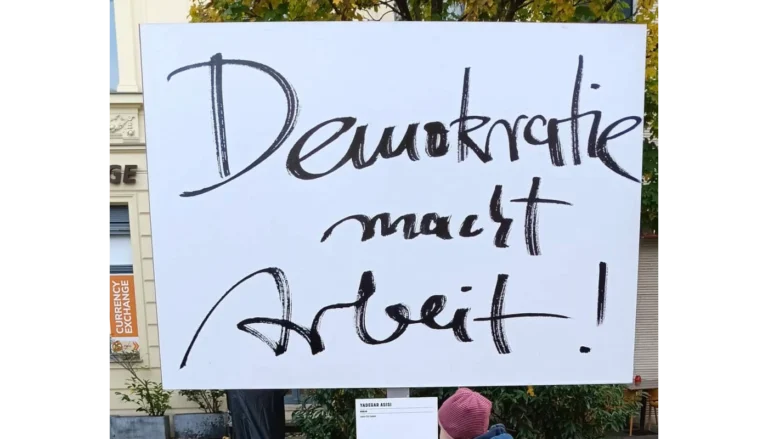 Demokratie
macht
Arbeit!
GE
CURRENCY
EXCHANGE
YADEGAR ASISI